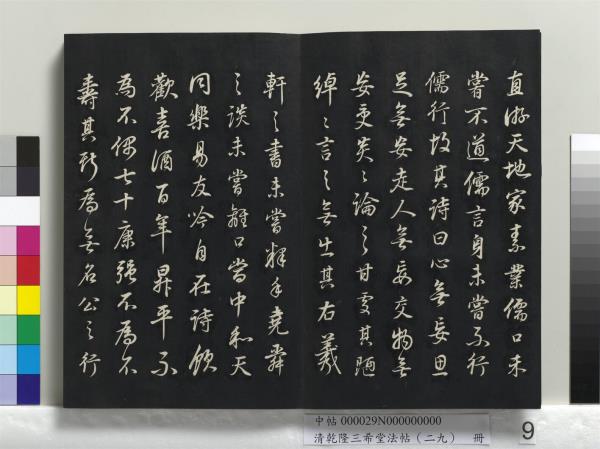 直游天地家素業儒口未
嘗不道儒言身未嘗不行
儒行故其詩曰心無妄思
足無妄走人無妄交物無
妄受炎〻論之甘處其陋
綽〻言之無出其右羲
軒之書未嘗釋手堯舜
之談未嘗離口當中和天
同樂易友吟自在詩飲
歡喜酒百年昇平不
為不偶七十康強不為不
壽其斯為無名公之行
中帖 000029N000000000
清乾隆三希堂法帖（二九） 冊
9